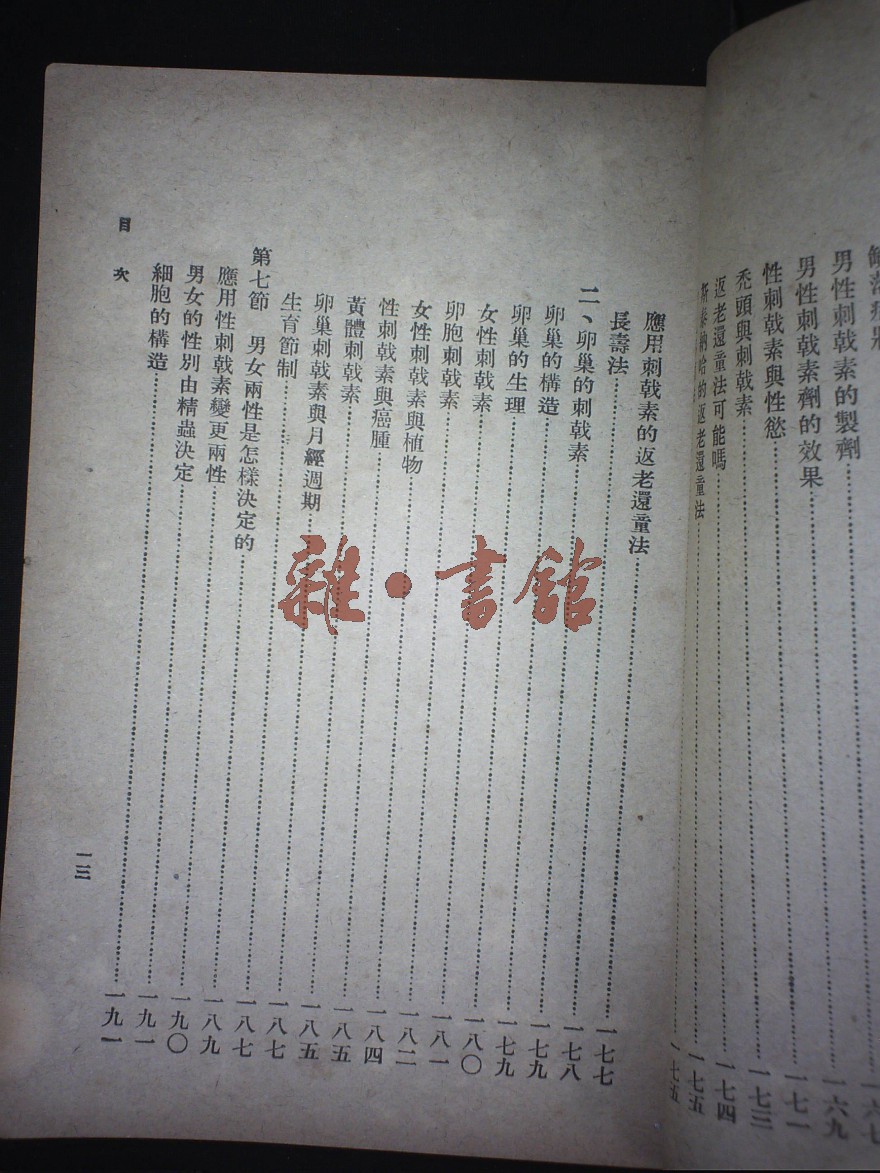 男性刺戟素的製劑……一六九
男性刺戟素劑的效果……一七一
性刺戟素與性慾……一七三
禿頭與刺戟素……一七四
返老還童法可能嗎……一七五
斯泰納哈的返老還童法……一七五
應用刺戟素的返老還童法……一七七
長壽法……一七八
二、卵巢的刺戟素……一七九
卵巢的構造……一七九
卵巢的生理……一八〇
女性刺戟素……一八一
卵胞刺戟素……一八二
女性刺戟素與植物……一八四
性刺戟素與癌腫……一八五
黃體刺戟素……一八五
卵巢刺戟素與月經週期……一八七
生育節制……一八七
第七節 男女兩性是怎樣決定的……一八九
應用性刺戟素變更兩性……一九〇
男女的性別由精蟲決定……一九一
細胞的構造……一九一
目次
一三
雜·書館